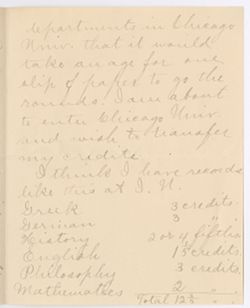 departments in Chicago
Univ. that it would
take an age for one
slip of paper to go the
rounds. I am about
to enter Chicago Univ
and wish to transfer
my credits.
I think I have records
like this at I. U.
Greek 3 credits.
German 3 "
History 2 or 4
English 1⅔ credits
Philosophy 3 credits
Mathematics 2 "
Total 12⅔ "